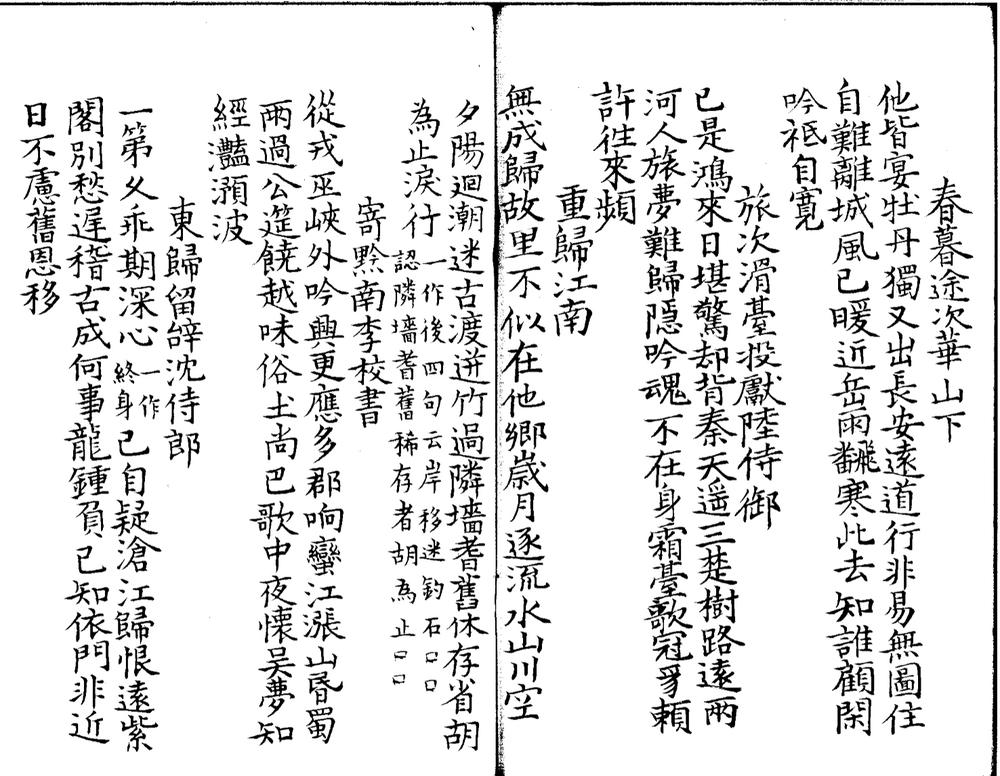 春暮途次華山下
他皆宴牡丹獨又出長安遠道行非易無圖住
自難離城風已暖近岳雨飜寒此去知誰顧閑
吟祗自寬
旅次滑臺投獻陸侍御
已是鴻來日堪驚却背秦天遥三楚樹路遠兩
河人旅夢難歸隐吟魂不在身霜臺歌冠豸賴
許徃來頻
重歸江南
無成歸故里不似在他鄉嵗月逐流水山川空
夕陽迴潮迷古渡迸竹過隣墻耆舊休存省胡
為止淚行一作後四句云岸移迷釣石□□
認隣墻耆舊稀存者胡為止□□
寄黔南李校書
從戎巫峽外吟興更應多郡响蠻江漲山昏蜀
雨過公筵饒越味俗土尚巴歌中夜懷吴夢知
經灩澦波
東歸留辝沈侍郎
一第久乖期深心一作終身已自疑滄江歸恨遠紫
閣別愁遲稽古成何事龍鍾負已知依門非近
日不慮舊恩移